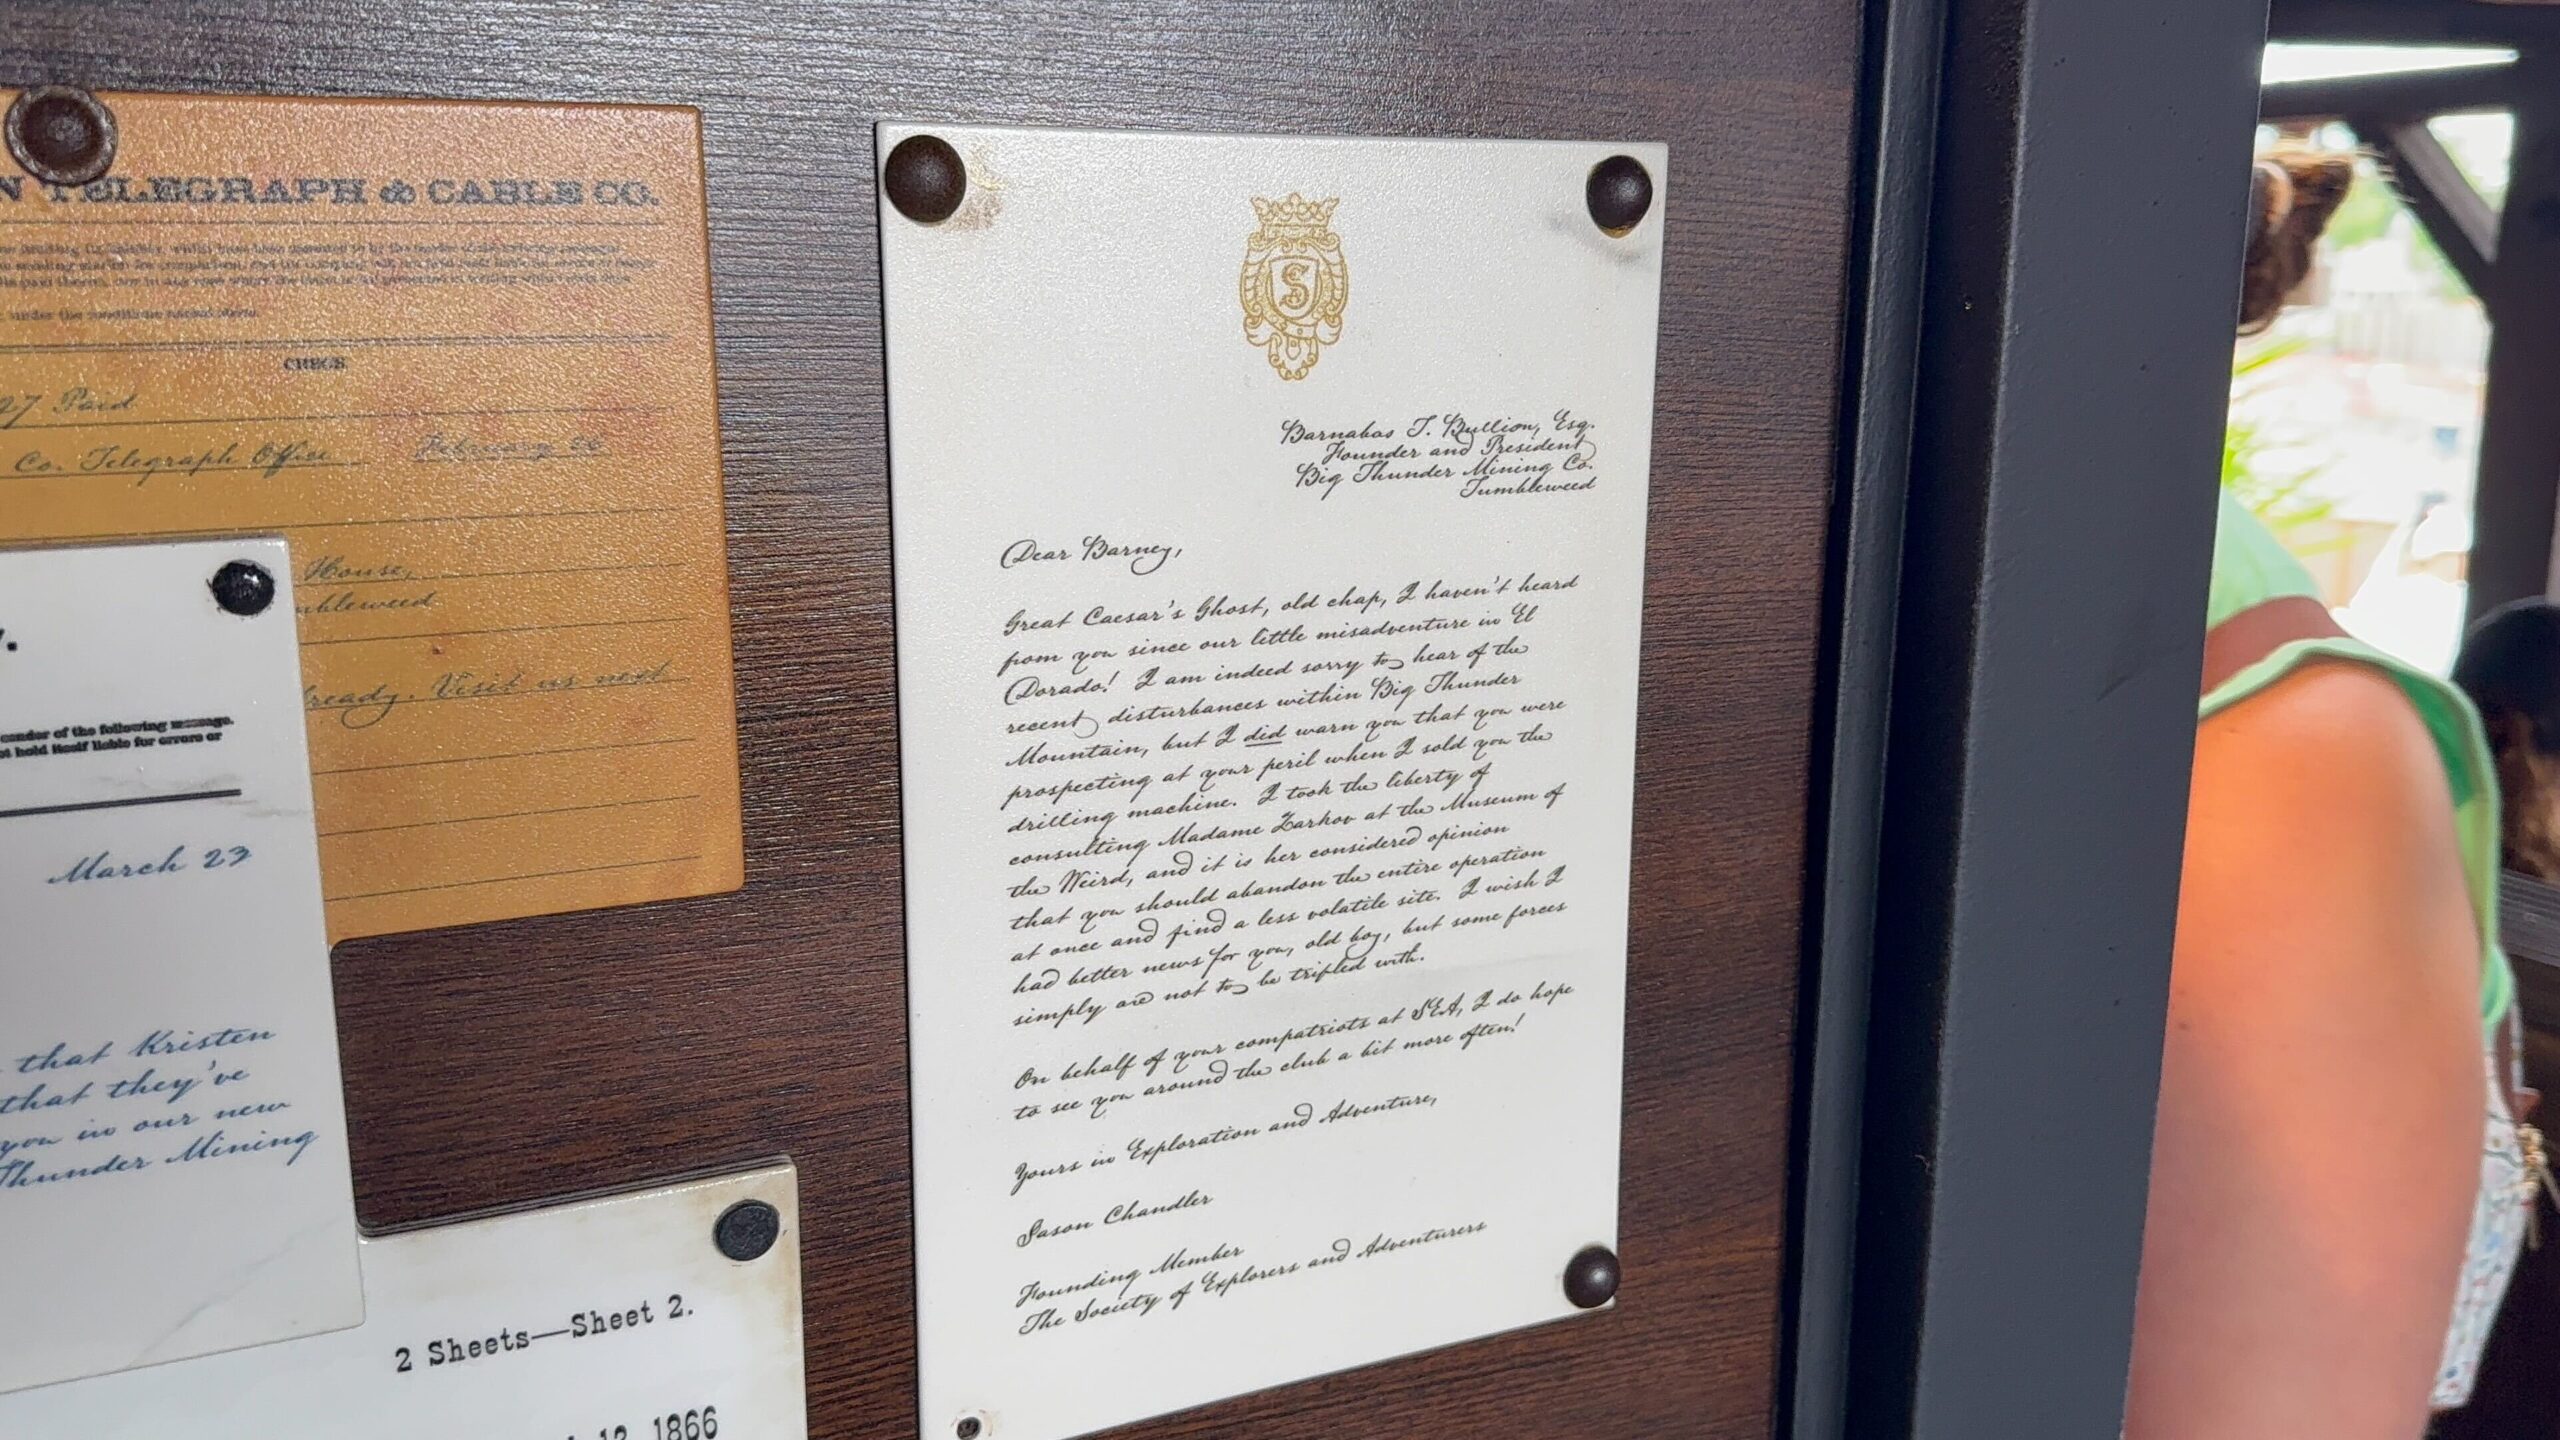 N TELEGRAPH & CABLE CO.
under the conditions named above.
CHECK
27 Paid
Co. Telegraph Office February 26
House,
mbleweed
lready. Visit us next
sender of the following message.
ot hold itself liable for errors or
March 23
that Kristen
that they've
you in our new
Thunder Mining
2 Sheets—Sheet 2.
12, 1866
S
Barnabas T. Bullion, Esq.
Founder and President
Big Thunder Mining Co.
Tumbleweed
Dear Barney,
Great Caesar's Ghost, old chap, I haven't heard
from you since our little misadventure in El
Dorado! I am indeed sorry to hear of the
recent disturbances within Big Thunder
Mountain, but I did warn you that you were
prospecting at your peril when I sold you the
drilling machine. I took the liberty of
consulting Madame Zarkov at the Museum of
the Weird, and it is her considered opinion
that you should abandon the entire operation
at once and find a less volatile site. I wish I
had better news for you, old boy, but some forces
simply are not to be trifled with.
On behalf of your compatriots at SEA, I do hope
to see you around the club a bit more often!
Yours in Exploration and Adventure,
Jason Chandler
Founding Member
The Society of Explorers and Adventurers